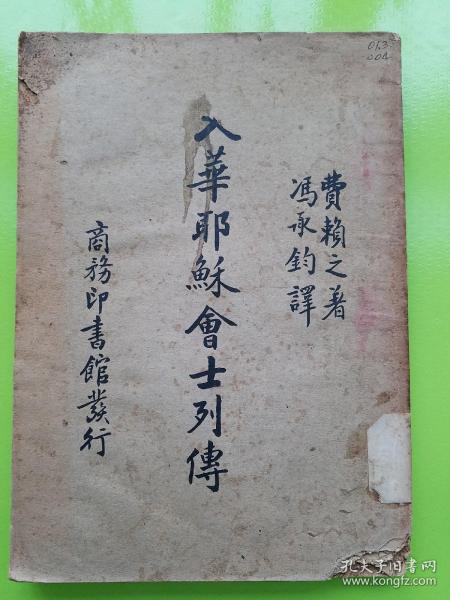 013
004
費賴之著
馮承鈞譯
入華耶穌會士列傳
商務印書館發行
孔夫子旧书网
www.kongfz.com